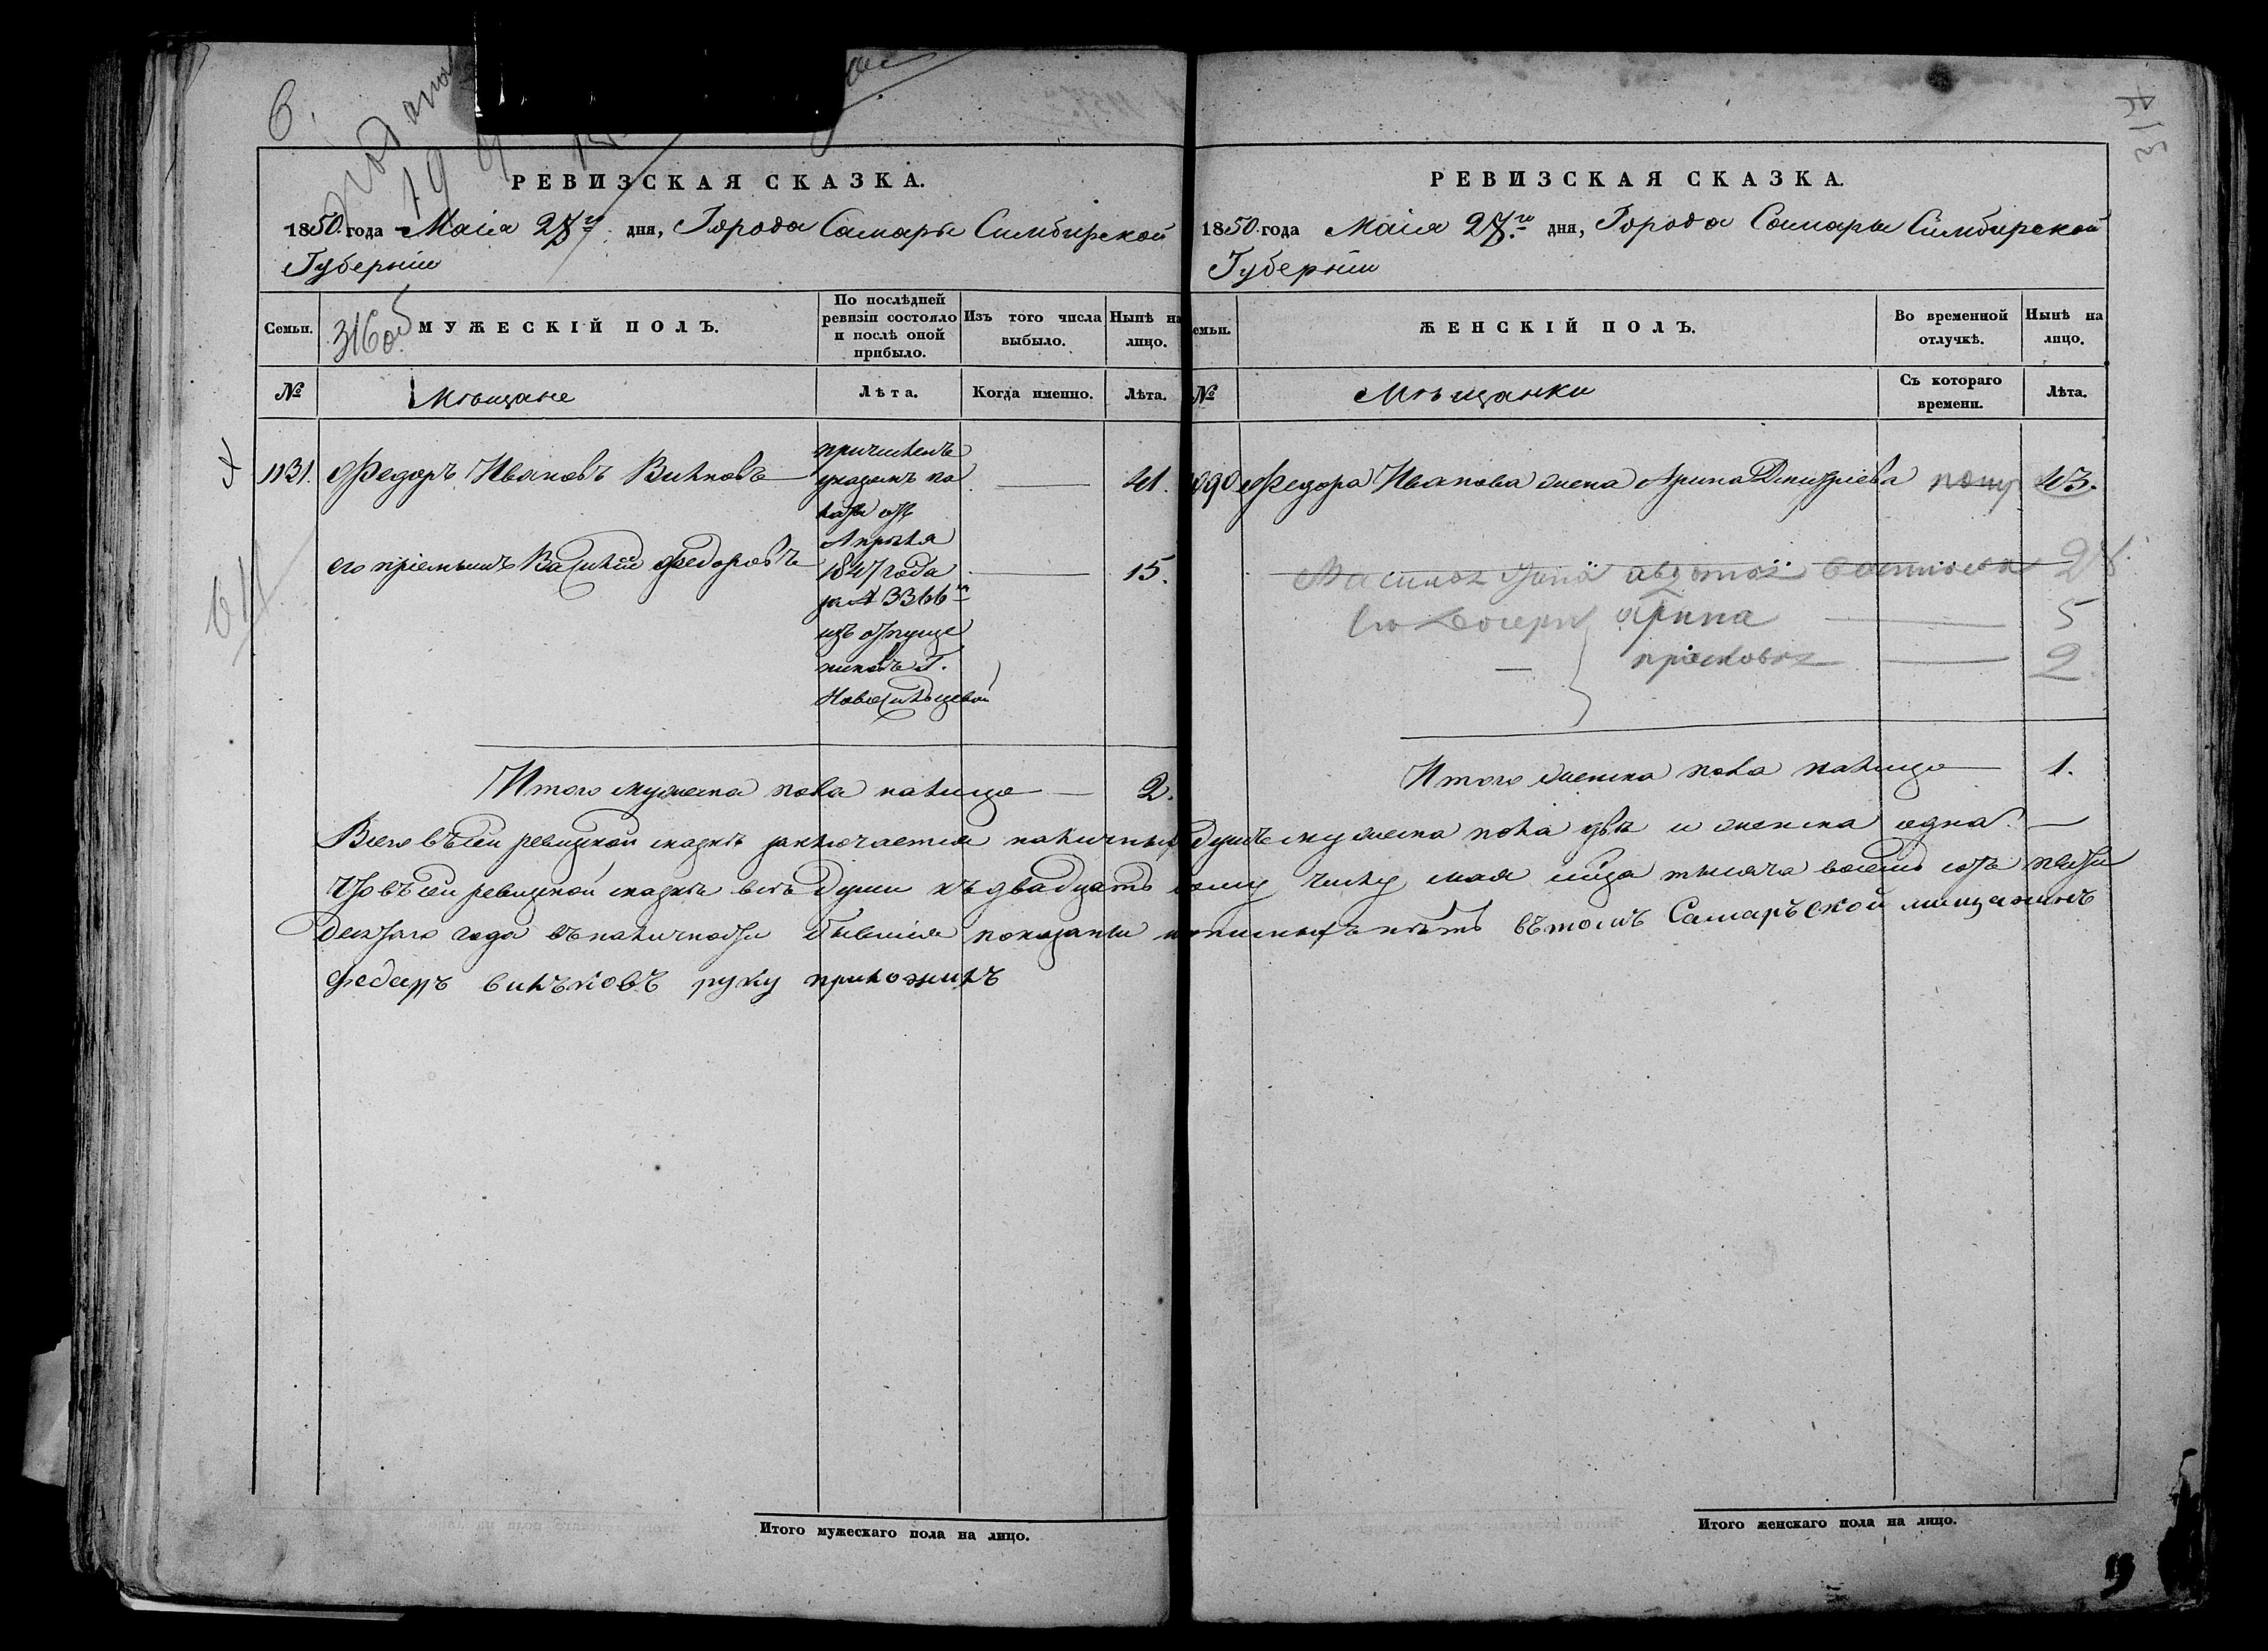 6.
РЕВИЗСКАЯ СКАЗКА.
1850 года Маія 28го дня, Города Самары Симбирской
Губерніи
Семьи.
316об
МУЖЕСКІЙ ПОЛЪ.
По послѣдней ревизіи состояло и послѣ оной прибыло.
Изъ того числа выбыло.
Нынѣ на лицо.
№
Мѣщане
Лѣта.
Когда именно.
Лѣта.
1131. Федоръ Ивановъ Вилковъ
41.
его пріемышъ Василій Федоровъ
15.
причисленъ
указомъ па
латы отъ
Апрѣля
1847 года
за № 3366м
изъ отпуще
никовъ Г.
Новосильцевой
Итого мужеска пола налицо 2.
РЕВИЗСКАЯ СКАЗКА.
1850 года Маія 28го дня, Города Самары Симбирской
Губерніи
емьи.
ЖЕНСКІЙ ПОЛЪ.
Во временной отлучкѣ.
Нынѣ на лицо.
№
Мѣщанки
Съ котораго времени.
Лѣта.
Федора Иванова жена Арина Дмитріева 43.
Василья жена авдотья 28.
его дочери арина 5
прасковья 2
Итого женска пола налицо 1.
Всего въ сей ревизской сказкѣ заключается наличныхъ душъ мужеска пола двѣ и женска одна.
Что въ сей ревизской сказкѣ всѣ души къ двадцать осьму числу мая мѣсяца тысяча восемь сотъ пяти
десятаго года въ наличности бывшія показаны и прописныхъ нѣтъ вътомъ Самаръской мищанинъ
федаръ вилъковъ руку приложилъ
Итого мужескаго пола на лицо.
Итого женскаго пола на лицо.